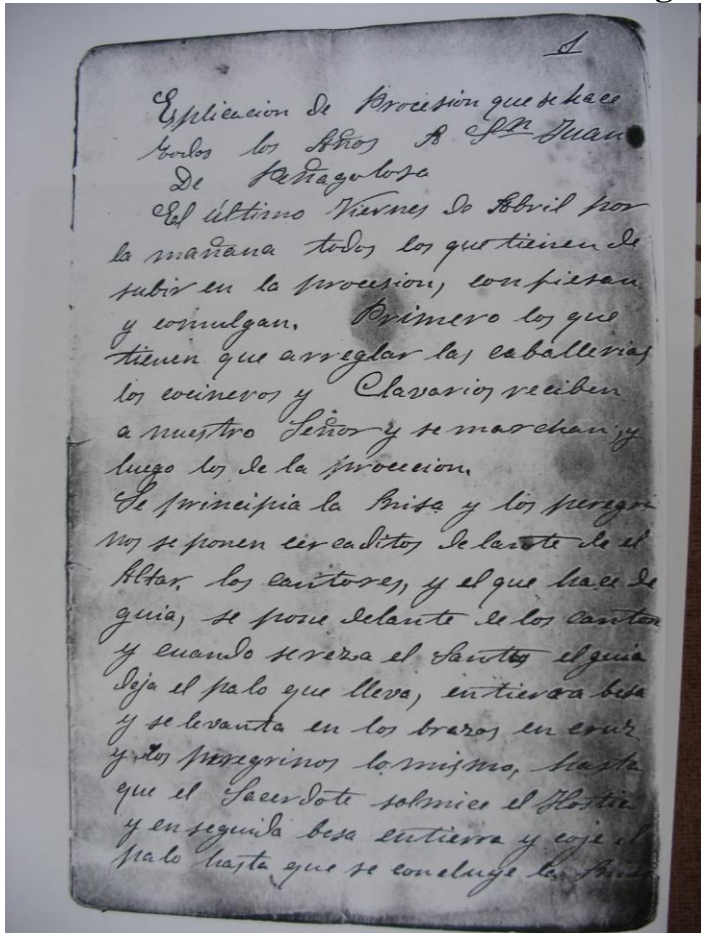 1
Esplicacion de Procesion que se hace
todos los Años A Sn Juan
De Peñagolosa
El último Viernes de Abril por
la mañana todos los que tienen de
subir en la procesion, confiesan
y comulgan. Primero los que
tienen que arreglar las caballerias
los cocineros y Clavarios reciben
a nuestro Señor y se marchan, y
luego los de la procecion.
Se principia la Misa y los peregri
nos se ponen cercaditos delante de el
Altar, los cantores, y el que hace de
guia, se pone delante de los cantores
y cuando se reza el Santus el guia
deja el palo que lleva, en tierra besa
y se levanta en los brazos en cruz
y los peregrinos lo mismo, hasta
que el Sacerdote el Hostia
y en seguida besa en tierra y coje el
palo hasta que se concluye la Misa